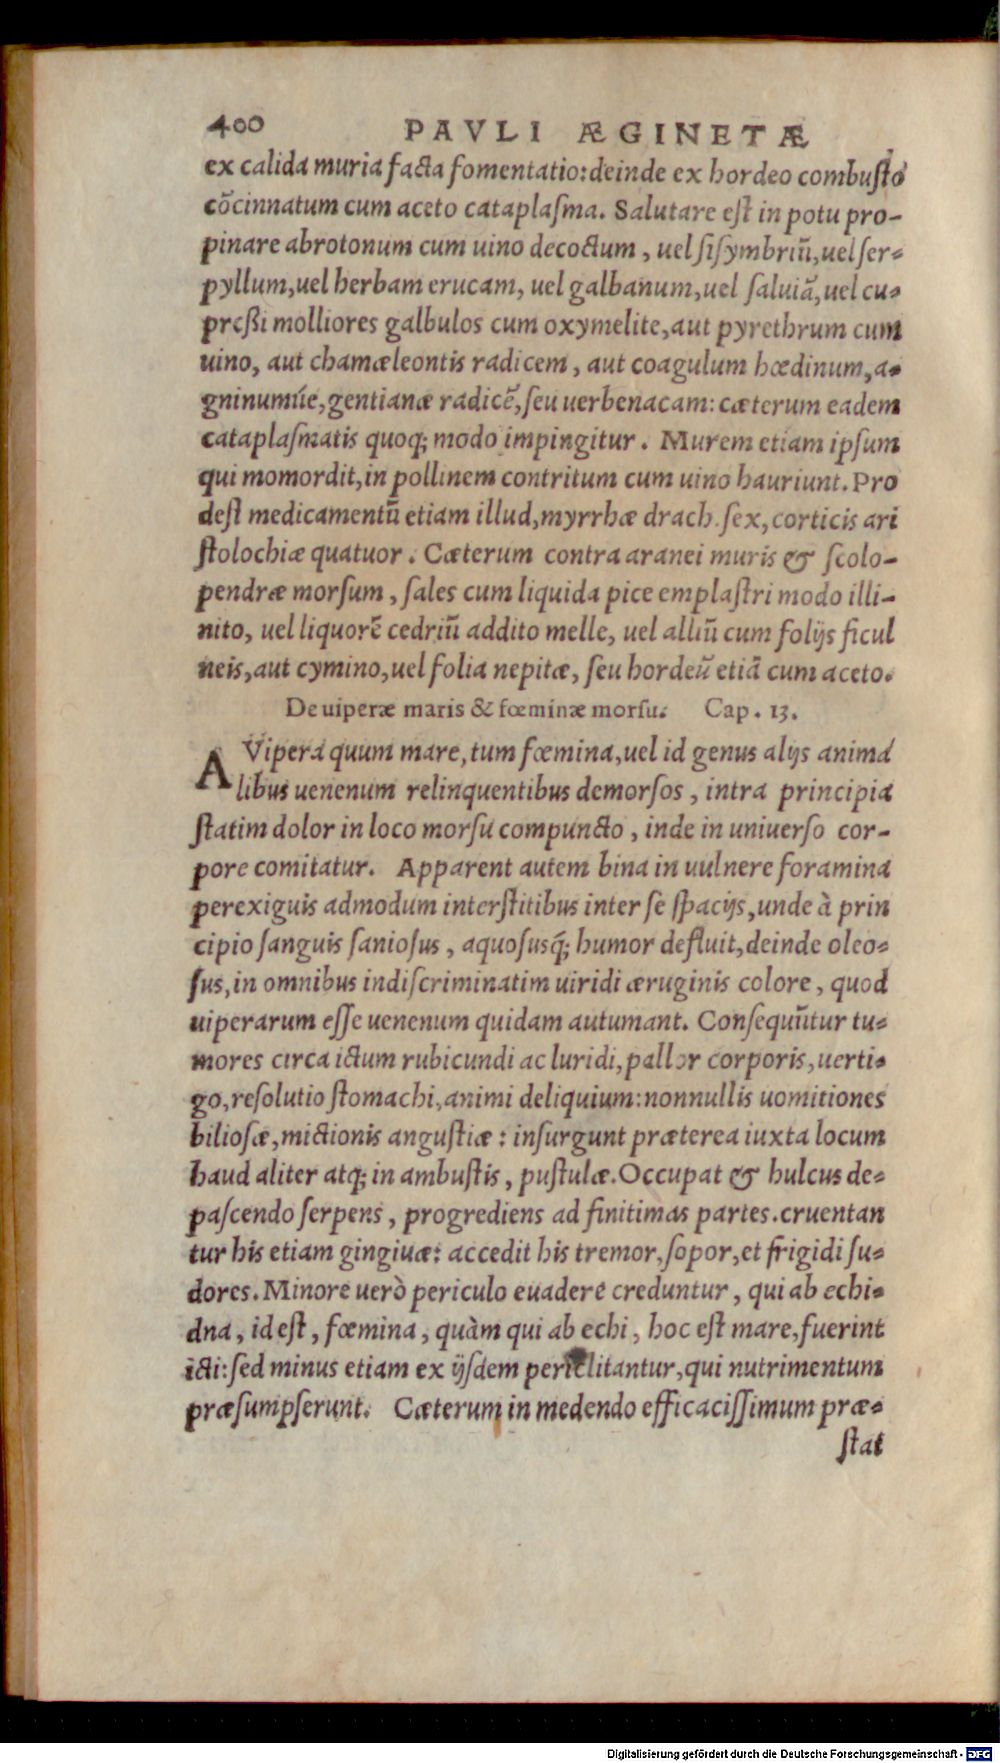 400 PAVLI ÆGINETÆ
ex calida muria facta fomentatio: deinde ex hordeo combusto
cōcinnatum cum aceto cataplasma. Salutare est in potu pro-
pinare abrotonum cum uino decoctum, uel sisymbriū, uel ser-
pyllum, uel herbam erucam, uel galbanum, uel saluiā, uel cu-
preßi molliores galbulos cum oxymelite, aut pyrethrum cum
uino, aut chamæleontis radicem, aut coagulum hœdinum, a-
gninumúe, gentianæ radicē, seu uerbenacam: cæterum eadem
cataplasmatis quoq; modo impingitur. Murem etiam ipsum
qui momordit, in pollinem contritum cum uino hauriunt. Pro
dest medicamentū etiam illud, myrrhæ drach. sex, corticis ari
stolochiæ quatuor. Cæterum contra aranei muris & scolo-
pendræ morsum, sales cum liquida pice emplastri modo illi-
nito, uel liquorē cedriū addito melle, uel alliū cum folijs ficul
neis, aut cymino, uel folia nepitæ, seu hordeū etiā cum aceto.
De uiperæ maris & fœminæ morsu. Cap. 13.
A Vipera quum mare, tum fœmina, uel id genus alijs anima
libus uenenum relinquentibus demorsos, intra principia
statim dolor in loco morsu compuncto, inde in uniuerso cor-
pore comitatur. Apparent autem bina in uulnere foramina
perexiguis admodum interstitibus inter se spacijs, unde à prin
cipio sanguis saniosus, aquosusq́; humor defluit, deinde oleo-
sus, in omnibus indiscriminatim uiridi æruginis colore, quod
uiperarum esse uenenum quidam autumant. Consequūtur tu-
mores circa ictum rubicundi ac luridi, pallor corporis, uerti-
go, resolutio stomachi, animi deliquium: nonnullis uomitiones
biliosæ, mictionis angustiæ: insurgunt præterea iuxta locum
haud aliter atq; in ambustis, pustulæ. Occupat & hulcus de-
pascendo serpens, progrediens ad finitimas partes. cruentan
tur his etiam gingiuæ: accedit his tremor, sopor, et frigidi su-
dores. Minore uerò periculo euadere creduntur, qui ab echi-
dna, id est, fœmina, quàm qui ab echi, hoc est mare, fuerint
icti: sed minus etiam ex ijsdem periclitantur, qui nutrimentum
præsumpserunt. Cæterum in medendo efficacissimum præ-
stat
Digitalisierung gefördert durch die Deutsche Forschungsgemeinschaft - DFG